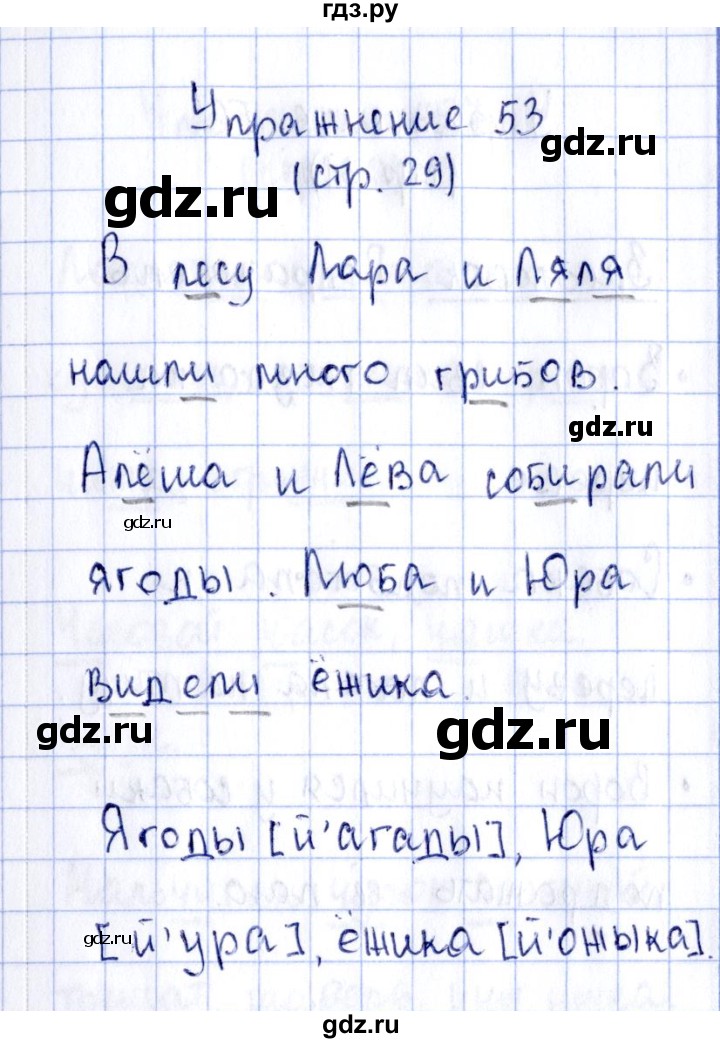 гдз.ру
Упражнение 53
gdz.ru
(стр. 29)
gdz.ru
В лесу Лара и Ляля
нашли много грибов.
gdz.ru
Алёша и Лёва собирали
gdz.ru
ягоды. Люба и Юра
видели ёжика
gdz.ru
gdz.ru
Ягоды [й'агады], Юра
gdz.ru
[й'ура], ёжика [й'ожыка].
gdz.ru